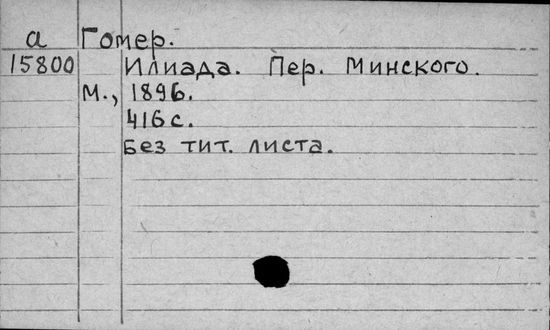 а Гомер.
15800 Илиада. Пер. Минского.
М., 1896.
416 с.
Без тит. листа.